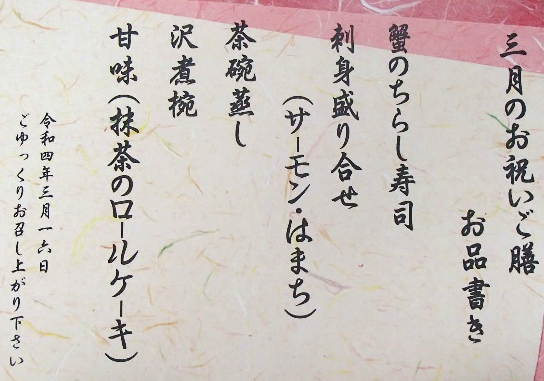 三月のお祝いご膳
お品書き
蟹のちらし寿司
刺身盛り合せ
(サーモン・はまち)
茶碗蒸し
沢煮椀
甘味(抹茶のロールケーキ)
令和四年三月一六日
ごゆっくりお召し上がり下さい